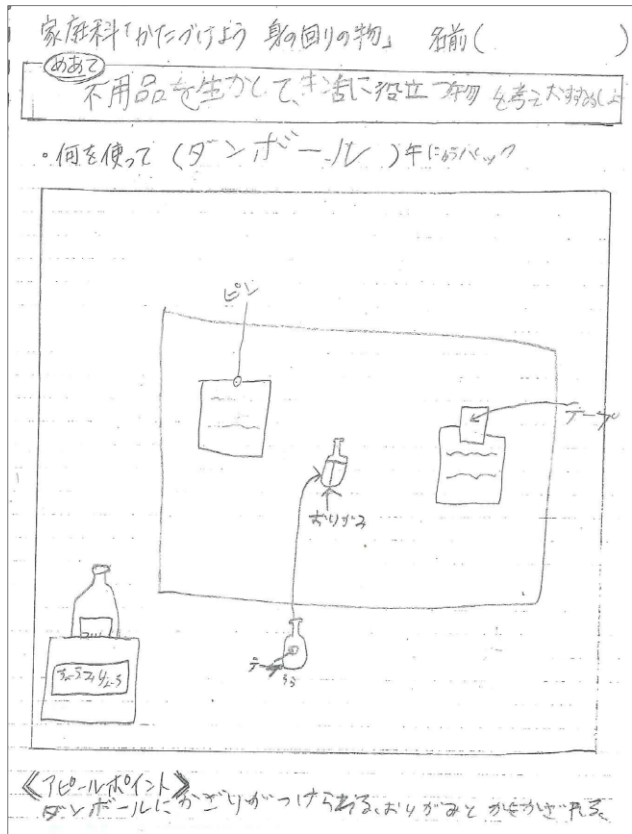 家庭科「かたづけよう 身の回りの物」 名前( )
めあて
不用品を生かして、生活に役立つ物を考え
・何を使って(ダンボール)牛にゅうパック
ピン
テープ
おりがみ
テープ
うら
《アピールポイント》
ダンボールにかざりがつけられる。おりがみとかをかざれる。